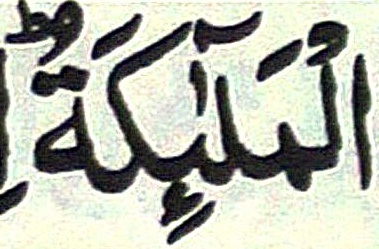 الْمَلٰٓئِكَةُ ؕ